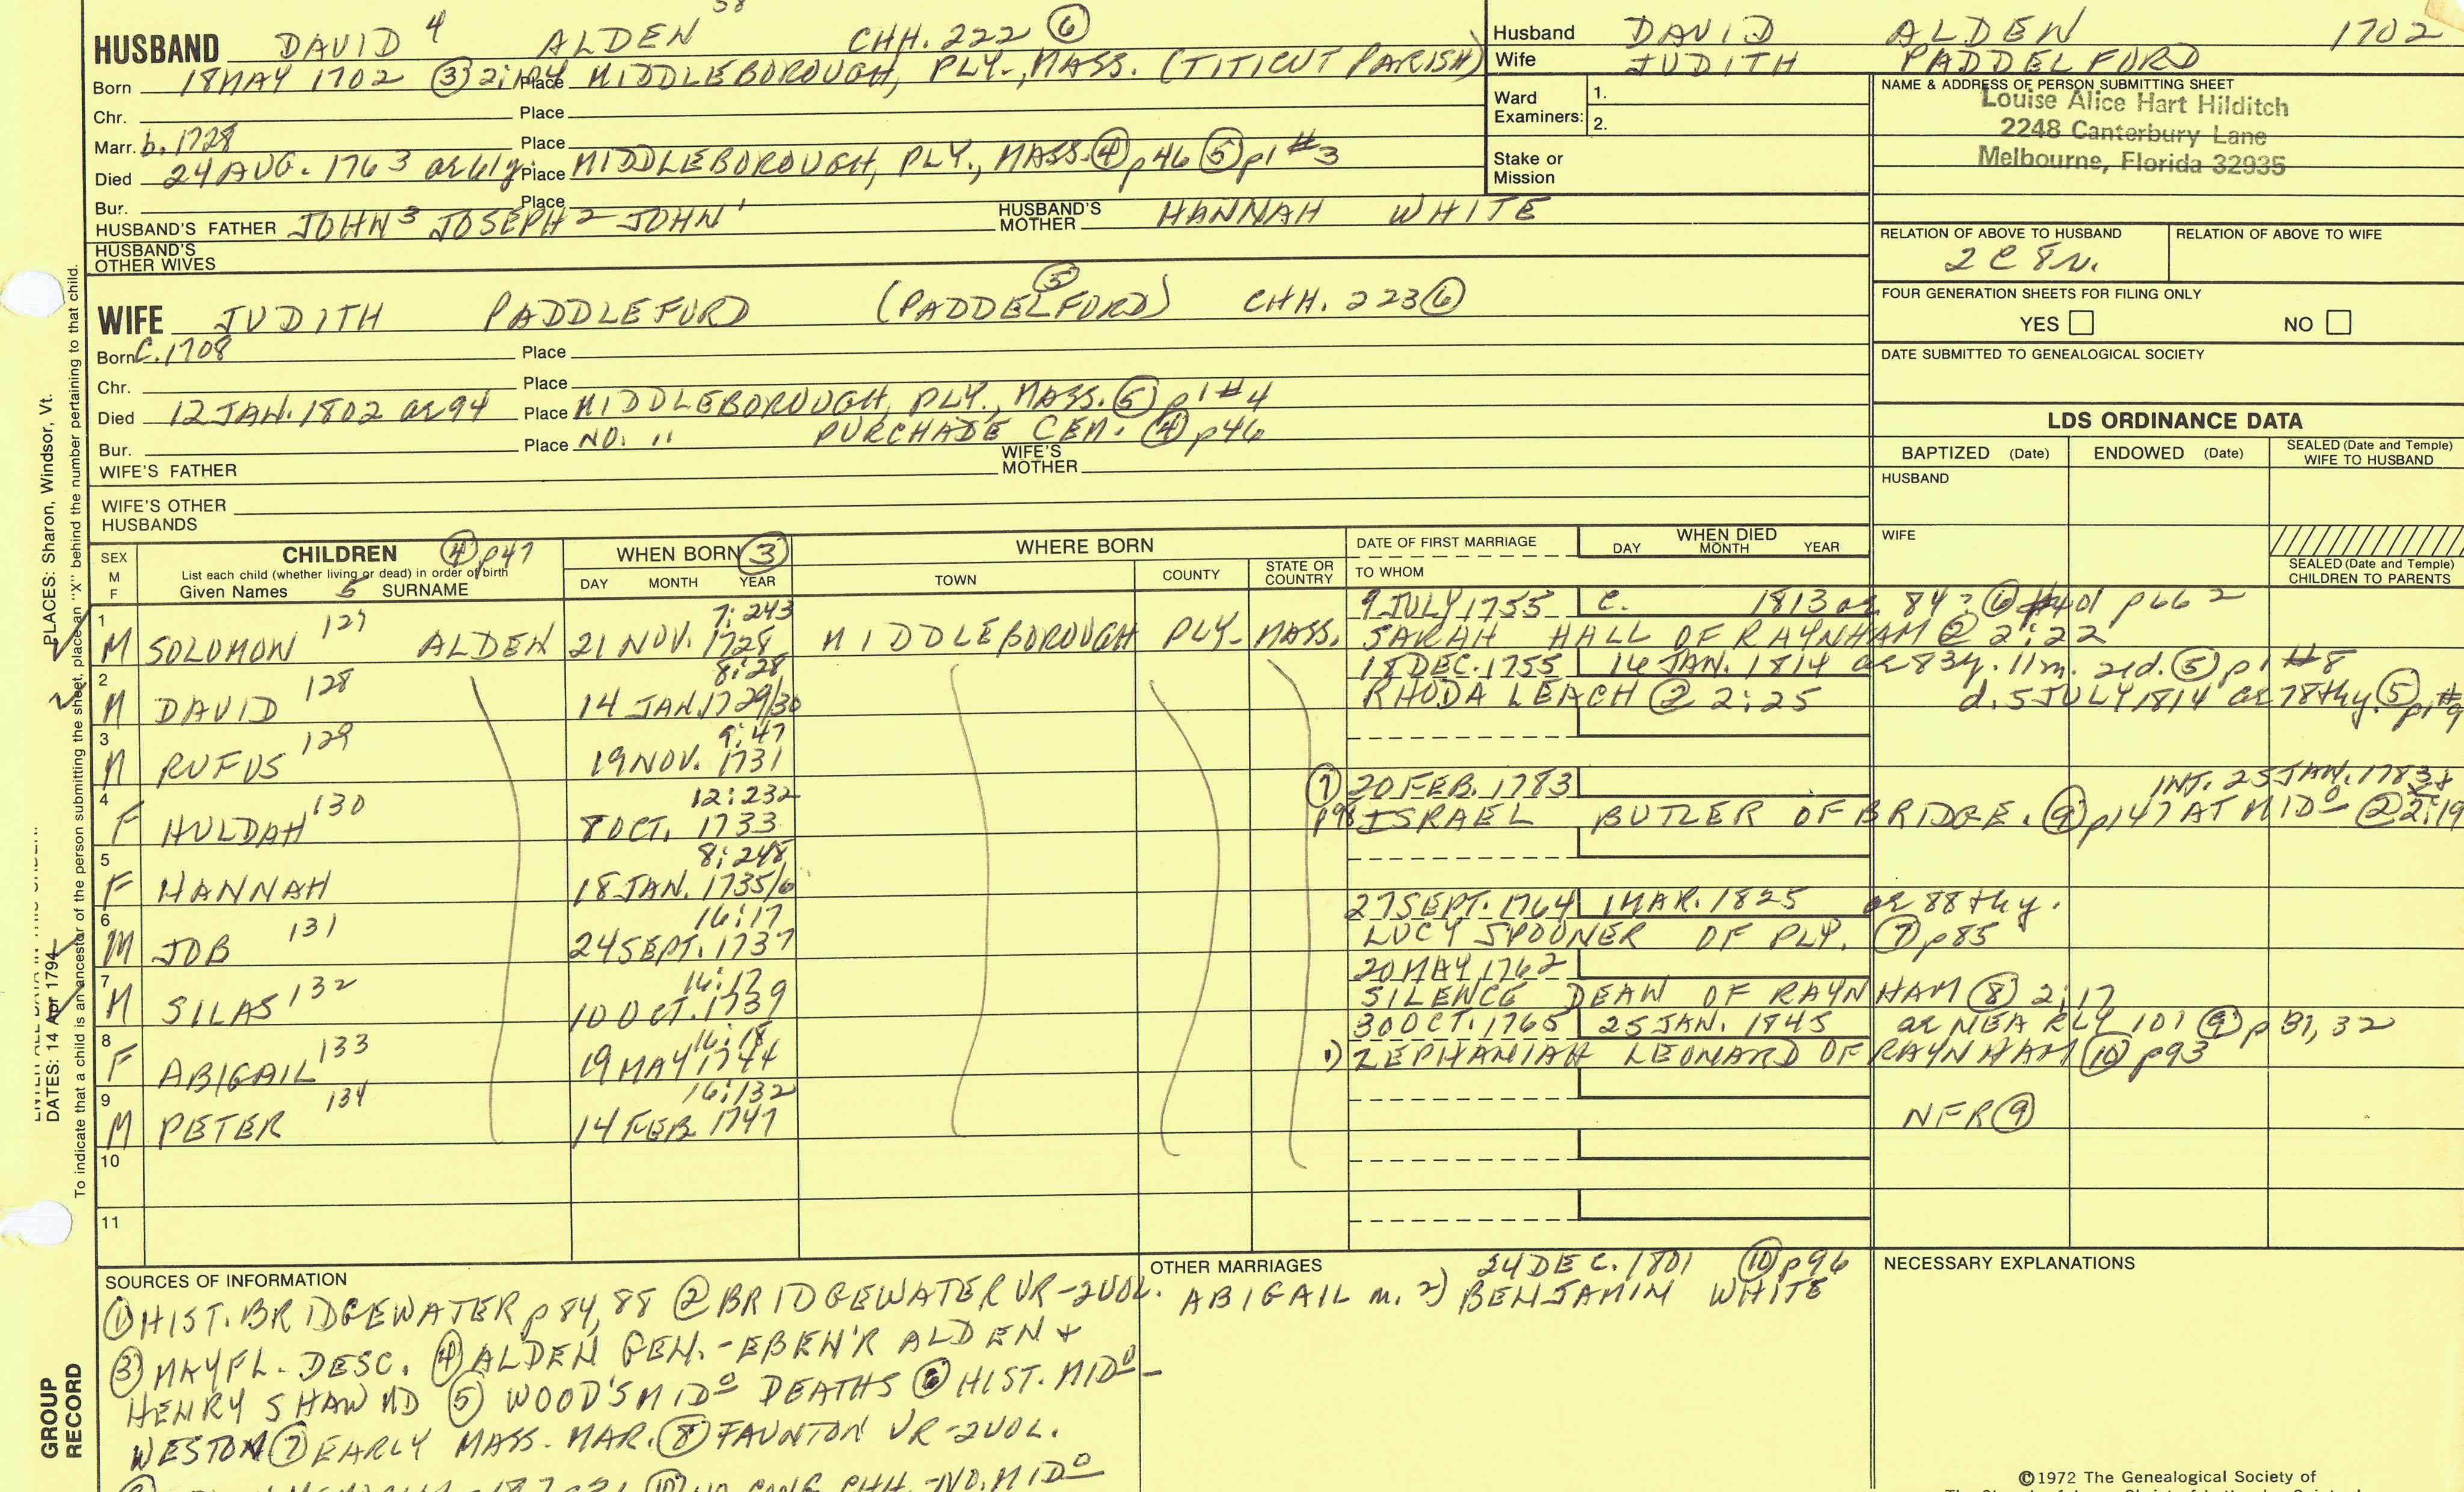 58
HUSBAND DAVID 4 ALDEN CHH. 222 ⑥
Born 18 MAY 1702 ③ 2: Place MIDDLEBOROUGH, PLY., MASS. (TITICUT PARISH)
Chr. Place
Marr. b. 1728 Place
Died 24 AUG. 1763 ae 61y Place MIDDLEBOROUGH, PLY., MASS. ④ p46 ⑤ p1 #3
Bur. Place
HUSBAND'S FATHER JOHN 3 JOSEPH 2 JOHN 1 HUSBAND'S MOTHER HANNAH WHITE
HUSBAND'S OTHER WIVES
WIFE JUDITH PADDLEFORD (PADDELFORD) ⑤ CHH. 223 ⑥
Born C. 1708 Place
Chr. Place
Died 12 JAN. 1802 ae 94 Place MIDDLEBOROUGH, PLY., MASS. ⑤ p1 #4
Bur. Place NO. " PURCHADE CEM. ④ p46
WIFE'S FATHER WIFE'S MOTHER
WIFE'S OTHER HUSBANDS
Husband DAVID ALDEN 1702
Wife JUDITH PADDELFORD
Ward Examiners: 1.
2.
Stake or Mission
NAME & ADDRESS OF PERSON SUBMITTING SHEET
Louise Alice Hart Hilditch
2248 Canterbury Lane
Melbourne, Florida 32935
RELATION OF ABOVE TO HUSBAND RELATION OF ABOVE TO WIFE
2 C 8 r.
FOUR GENERATION SHEETS FOR FILING ONLY
YES NO
DATE SUBMITTED TO GENEALOGICAL SOCIETY
LDS ORDINANCE DATA
BAPTIZED (Date) ENDOWED (Date) SEALED (Date and Temple) WIFE TO HUSBAND
HUSBAND
WIFE
SEALED (Date and Temple) CHILDREN TO PARENTS
SEX M F
CHILDREN ④ p47
List each child (whether living or dead) in order of birth
Given Names 5 SURNAME
WHEN BORN ③
DAY MONTH YEAR
WHERE BORN
TOWN COUNTY STATE OR COUNTRY
DATE OF FIRST MARRIAGE
TO WHOM
WHEN DIED
DAY MONTH YEAR
1 7:243 9 JULY 1755 C. 1813 ae 84? ⑥ p662
M SOLOMON 127 ALDEN 21 NOV. 1728 MIDDLEBOROUGH PLY. MASS. SARAH HALL OF RAYNHAM ② 2:22
2 8:28 18 DEC. 1755 14 JAN. 1814 ae 83y. 11m. 2d. ⑤ p1 #8
M DAVID 128 14 JAN. 1729/30 RHODA LEACH ② 2:25 d. 5 JULY 1814 ae 78thy. ⑤ p1 #9
3 9:47
M RUFUS 129 19 NOV. 1731
4 12:232 ⑦ 20 FEB. 1783 INT. 25 JAN. 1783 +
F HULDAH 130 8 OCT. 1733 p98 ISRAEL BUTLER OF BRIDGE. ⑨ p147 AT MIDº ② 2:19
5 8:248
F HANNAH 18 JAN. 1735/6
6 16:17 27 SEPT. 1764 1 MAR. 1825 ae 88thy.
M JOB 131 24 SEPT. 1737 LUCY SPOONER OF PLY. ⑦ p85
7 16:17 20 MAY 1762
M SILAS 132 10 OCT. 1739 SILENCE DEAN OF RAYNHAM ⑧ 2:17
8 16:18 30 OCT. 1765 25 JAN. 1845 ae NEARLY 101 ⑨ p 31, 32
F ABIGAIL 133 19 MAY 1744 1) ZEPHANIAH LEONARD OF RAYNHAM ⑩ p93
9 16:132
M PETER 134 14 FEB. 1747 NFR ⑨
10
11
SOURCES OF INFORMATION
① HIST. BRIDGEWATER p 84, 88 ② BRIDGEWATER VR-2VOL.
③ MAYFL. DESC. ④ ALDEN GEN. - EBEN'R ALDEN +
HENRY SHAW MD ⑤ WOOD'S MIDº DEATHS ⑥ HIST. MIDº -
WESTON ⑦ EARLY MASS. MAR. ⑧ TAUNTON VR-2VOL.
⑩ CONG. CHH. - NO. MIDº
OTHER MARRIAGES 24 DEC. 1801 ⑩ p96
ABIGAIL m. 2) BENJAMIN WHITE
NECESSARY EXPLANATIONS
©1972 The Genealogical Society of
PLACES: Sharon, Windsor, Vt.
DATES: 14 Apr 1794
To indicate that a child is an ancestor of the person submitting the sheet, place an "X" behind the number pertaining to that child.
GROUP RECORD